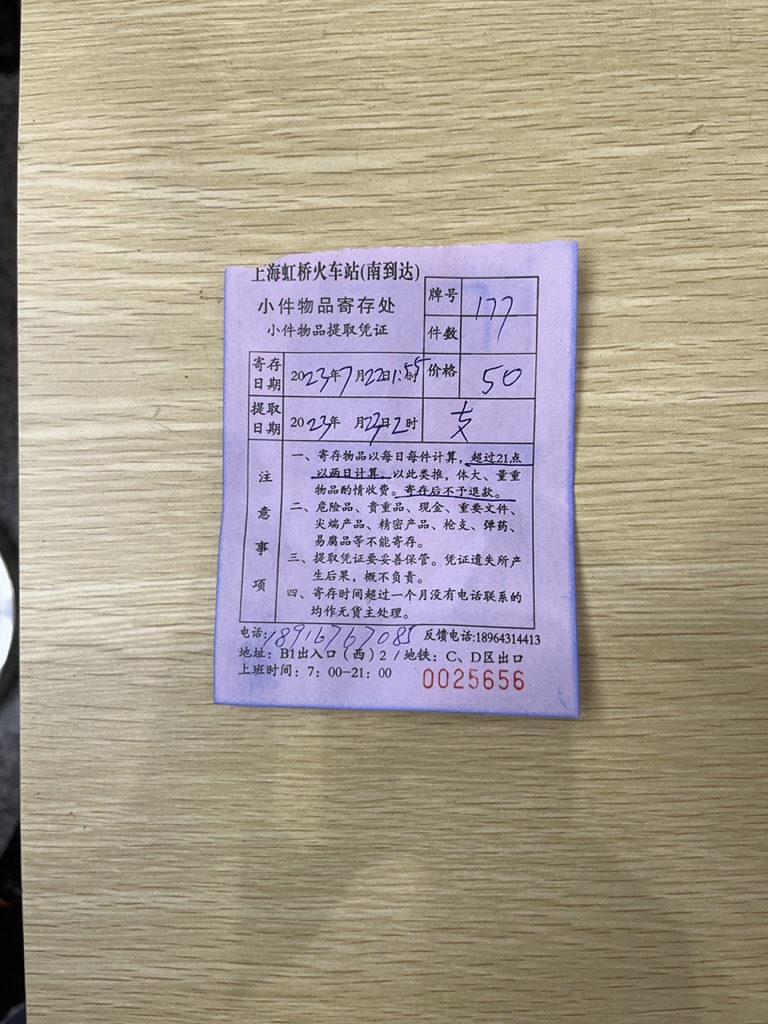 上海虹桥火车站(南到达)
小件物品寄存处
小件物品提取凭证
牌号 177
件数
寄存日期 2023年7月22日1:55时 价格 50
提取日期 2023年 月23日2时 支
注意事项
一、寄存物品以每日每件计算，超过21点
以两日计算，以此类推，体大、量重
物品酌情收费。寄存后不予退款。
二、危险品、贵重品、现金、重要文件、
尖端产品、精密产品、枪支、弹药、
易腐品等不能寄存。
三、提取凭证要妥善保管。凭证遗失所产
生后果，概不负责。
四、寄存时间超过一个月没有电话联系的
均作无货主处理。
电话:18916767085 反馈电话:18964314413
地址：B1出入口（西）2 / 地铁：C、D区出口
上班时间：7：00-21：00
0025656